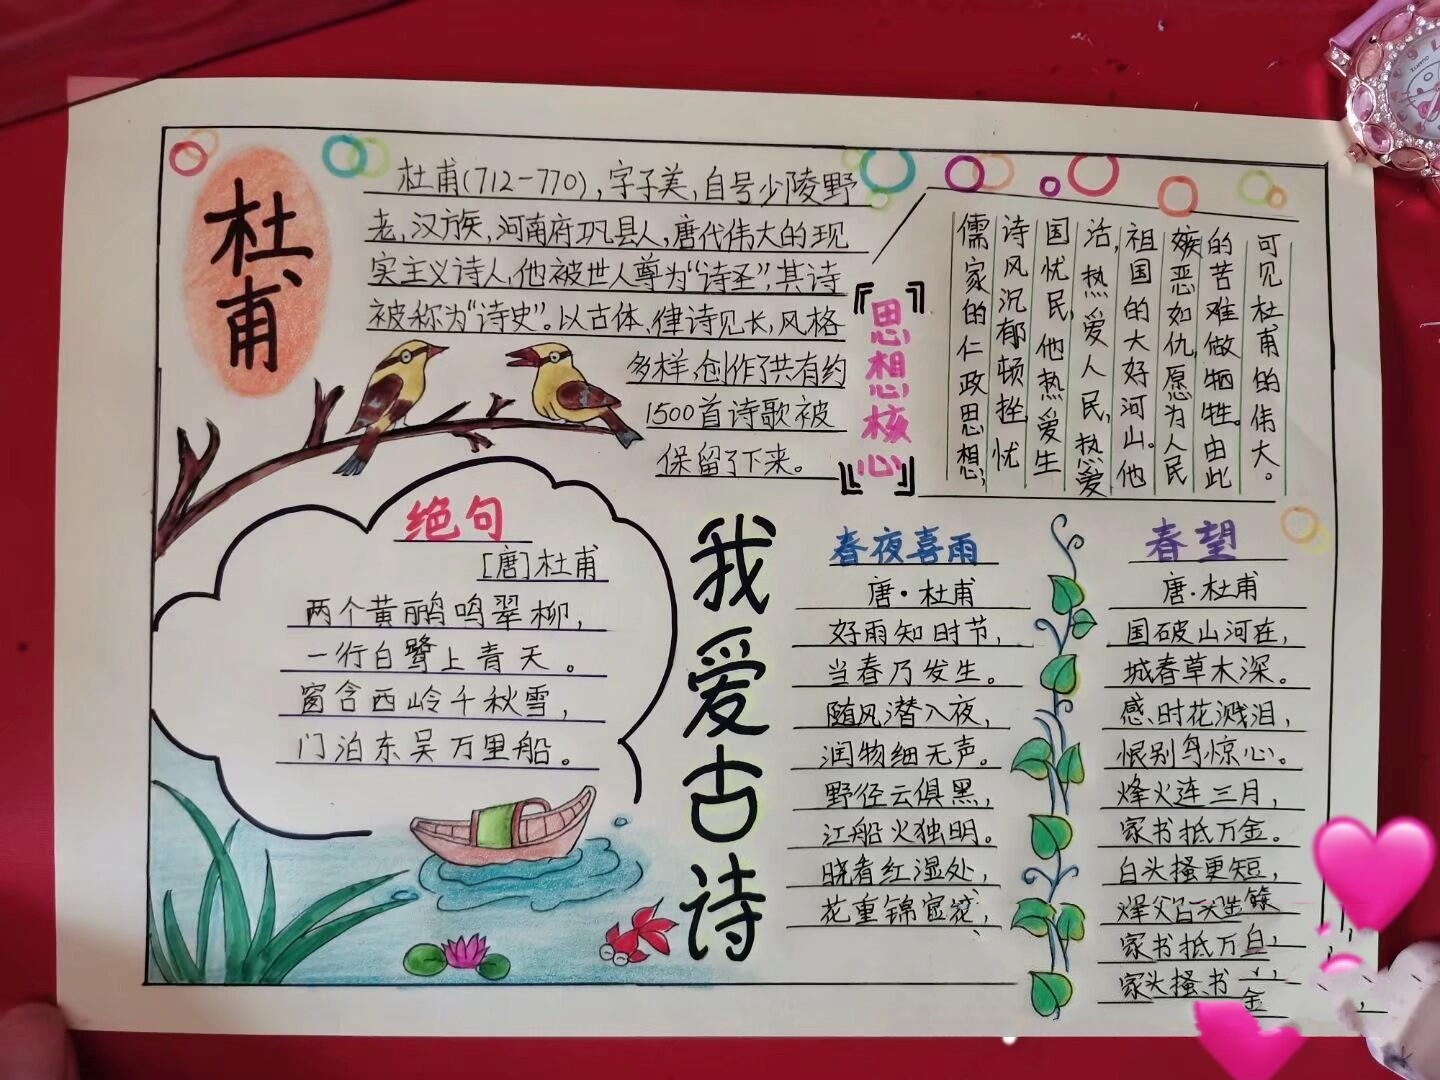 杜甫
杜甫(712-770),字子美,自号少陵野
老,汉族,河南府巩县人,唐代伟大的现
实主义诗人,他被世人尊为“诗圣”,其诗
被称为“诗史”。以古体、律诗见长,风格
多样,创作了共有约
1500首诗歌被
保留了下来。
『思想核心』
儒家的仁政思想,
诗风沉郁顿挫,忧
国忧民,他热爱生
活,热爱人民,热爱
祖国的大好河山。他
嫉恶如仇,愿为人民
的苦难做牺牲。由此
可见杜甫的伟大。
绝句
[唐]杜甫
两个黄鹂鸣翠柳,
一行白鹭上青天。
窗含西岭千秋雪,
门泊东吴万里船。
我爱古诗
春夜喜雨
唐·杜甫
好雨知时节,
当春乃发生。
随风潜入夜,
润物细无声。
野径云俱黑,
江船火独明。
晓看红湿处,
花重锦官
春望
唐·杜甫
国破山河在,
城春草木深。
感时花溅泪,
恨别鸟惊心。
烽火连三月,
家书抵万金。
白头搔更短,
家书抵万白,
家头搔书
金